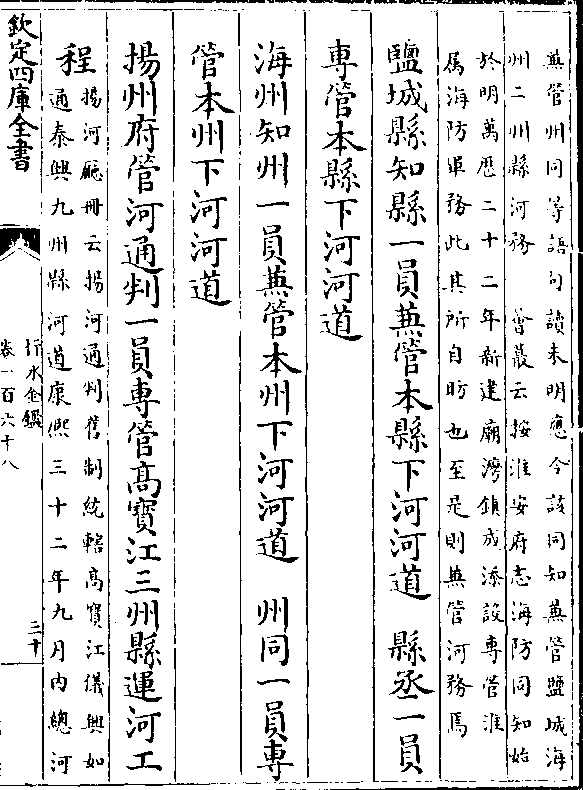 兼管州同等語句讀未明應令該同知兼管鹽城海
州二州縣河務　薈蕞云按淮安府志海防同知始
於明萬歷二十二年新建廟灣鎮成添設專管淮
属海防軍務此其所自昉也至是則兼管河務焉
鹽城縣知縣一員兼管本縣下河河道　縣丞一員
專管本縣下河河道
海州知州一員兼管本州下河河道　州同一員專
管本州下河河道
揚州府管河通判一員專管高寶江三州縣運河工
程揚河廳冊云揚河通判舊制統轄高寶江儀興如
通泰興九州縣河道康熙三十二年九月内總河
欽定四庫全書
行水金鑑
卷一百六十八
三十